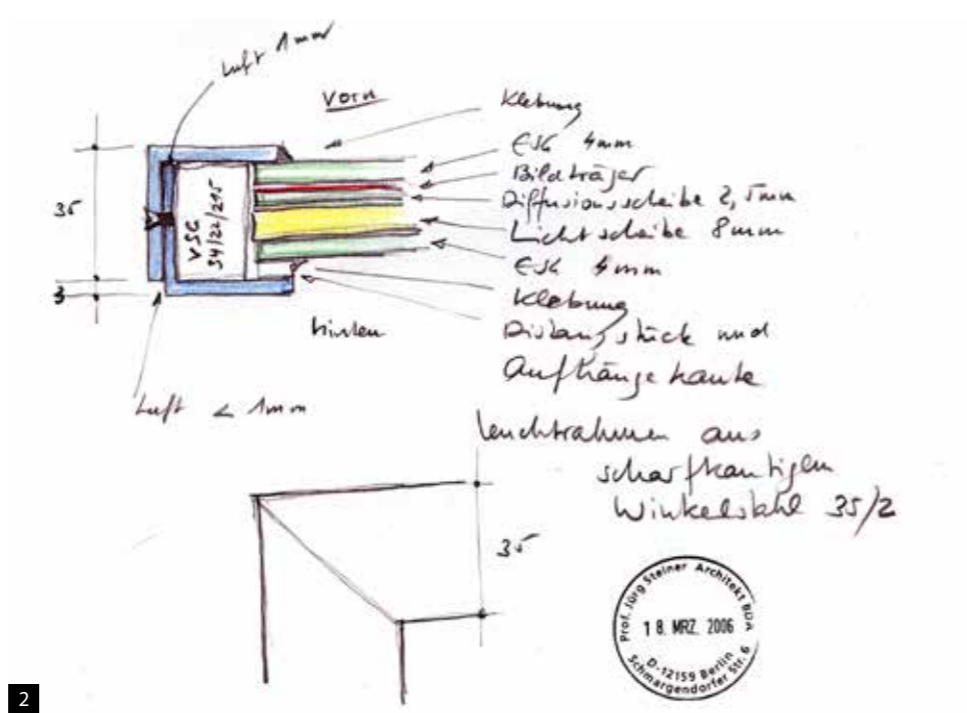 Luft 1mm
vorn
Klebung
ESG 4mm
Bildträger
Diffusionsscheibe 2,5mm
Lichtscheibe 8mm
ESG 4mm
Klebung
Distanzstück und
Aufhängekante
35
3
VSG
34/22/215
hinten
Luft < 1mm
Leuchtrahmen aus
scharfkantigem
Winkelstahl 35/2
35
Prof. Jörg Steiner Architekt BDA
18. MRZ. 2006
D-12159 Berlin
Schmargendorfer Str. 6
2